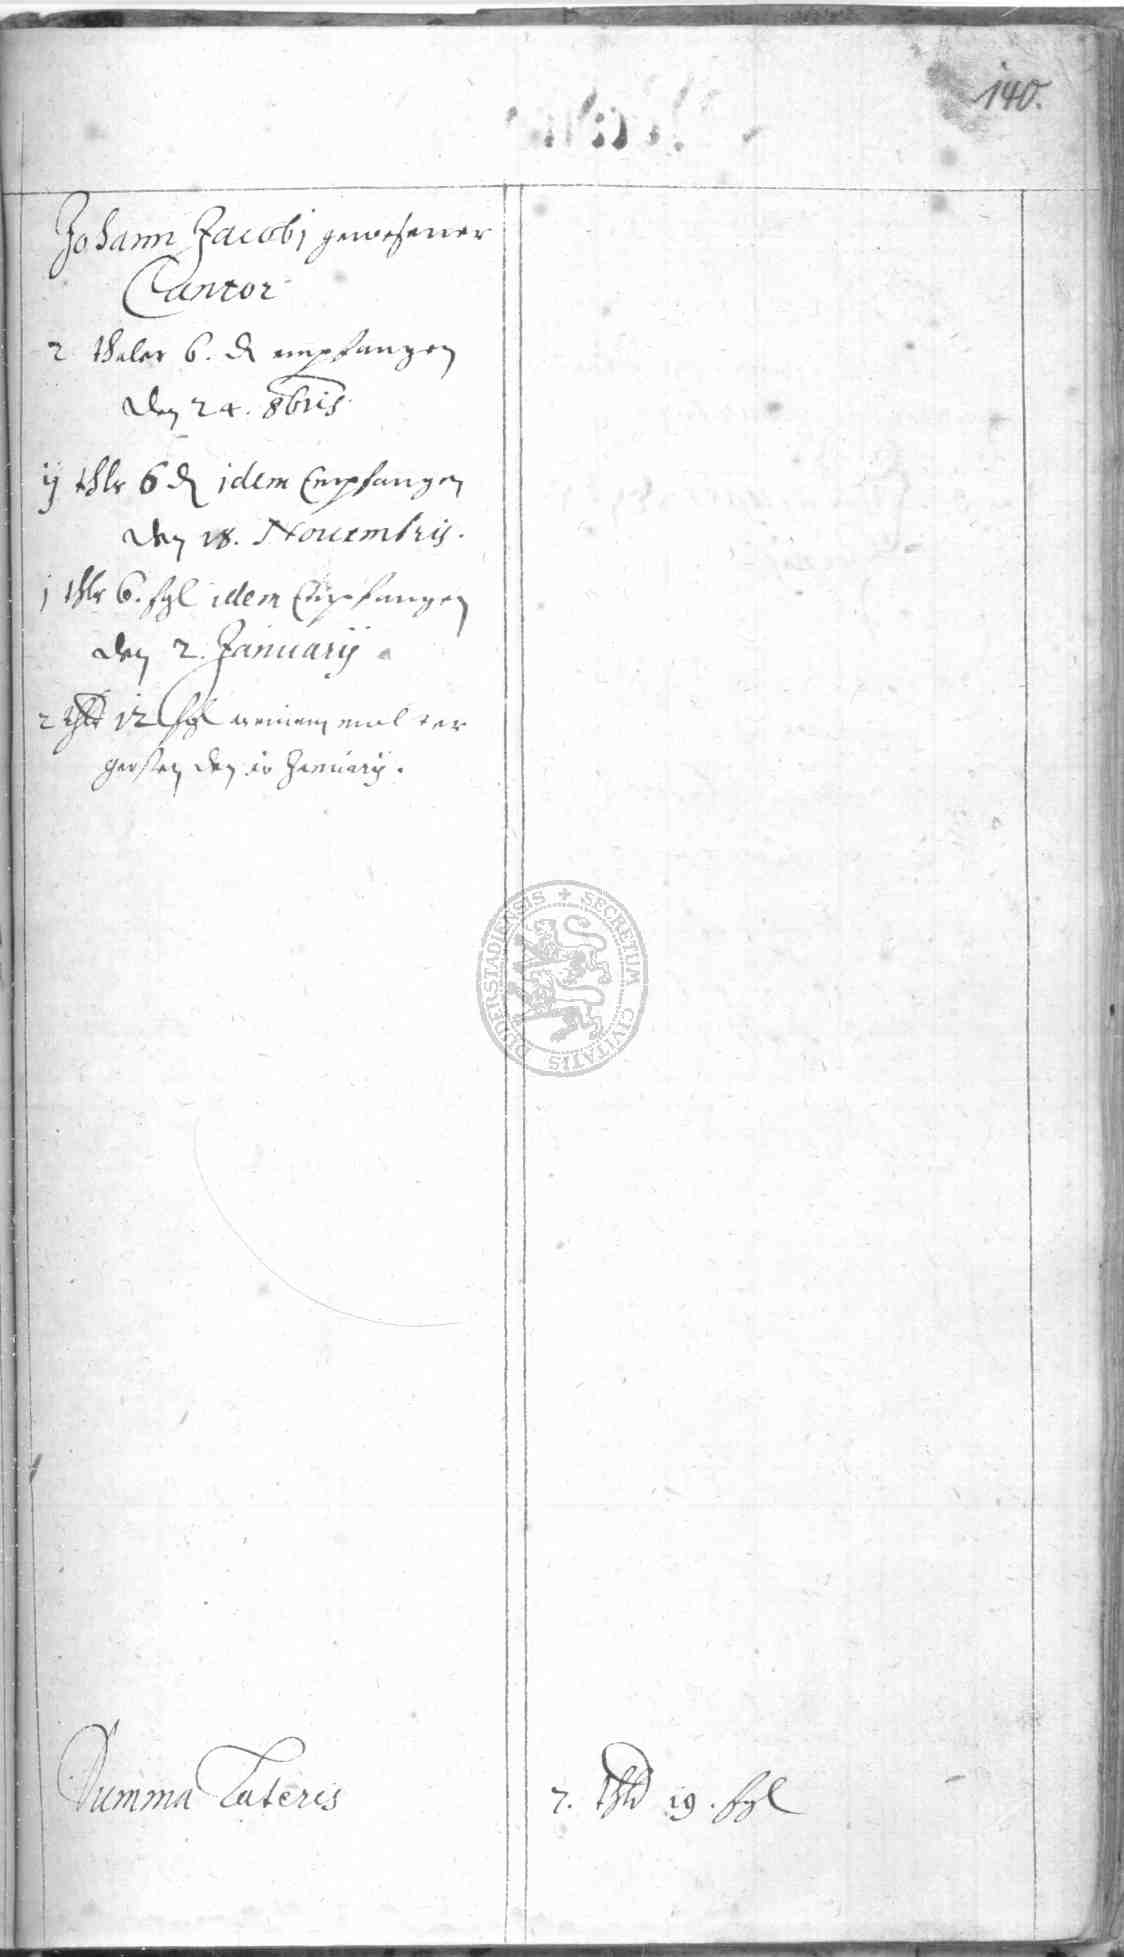 140.
Johann Jacobj gewesener
Cantor
2 thaler 6. ₰ empfangen
den 24. 8bris
ij thlr 6 ₰ idem Empfangen
den 18. Nouembris.
j thlr 6. sgl idem Empfangen
den 2. Januarij
2 thlr 12 sgl einem malter
gersten den 10 Januarij.
SECRETUM CIVITATIS DUDERSTADIENSIS
Summa Lateris 7. thlr 19. sgl